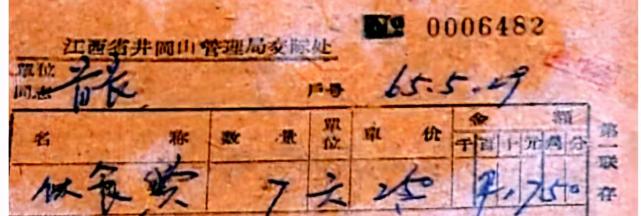 No 0006482
江西省井岡山管理局交际处
單位
同志 首长 戶号 65.5.29
名 称 数 量 單位 單 价 金 额
千百十元角分
伙食费 7 天 250 17.50
第一联存